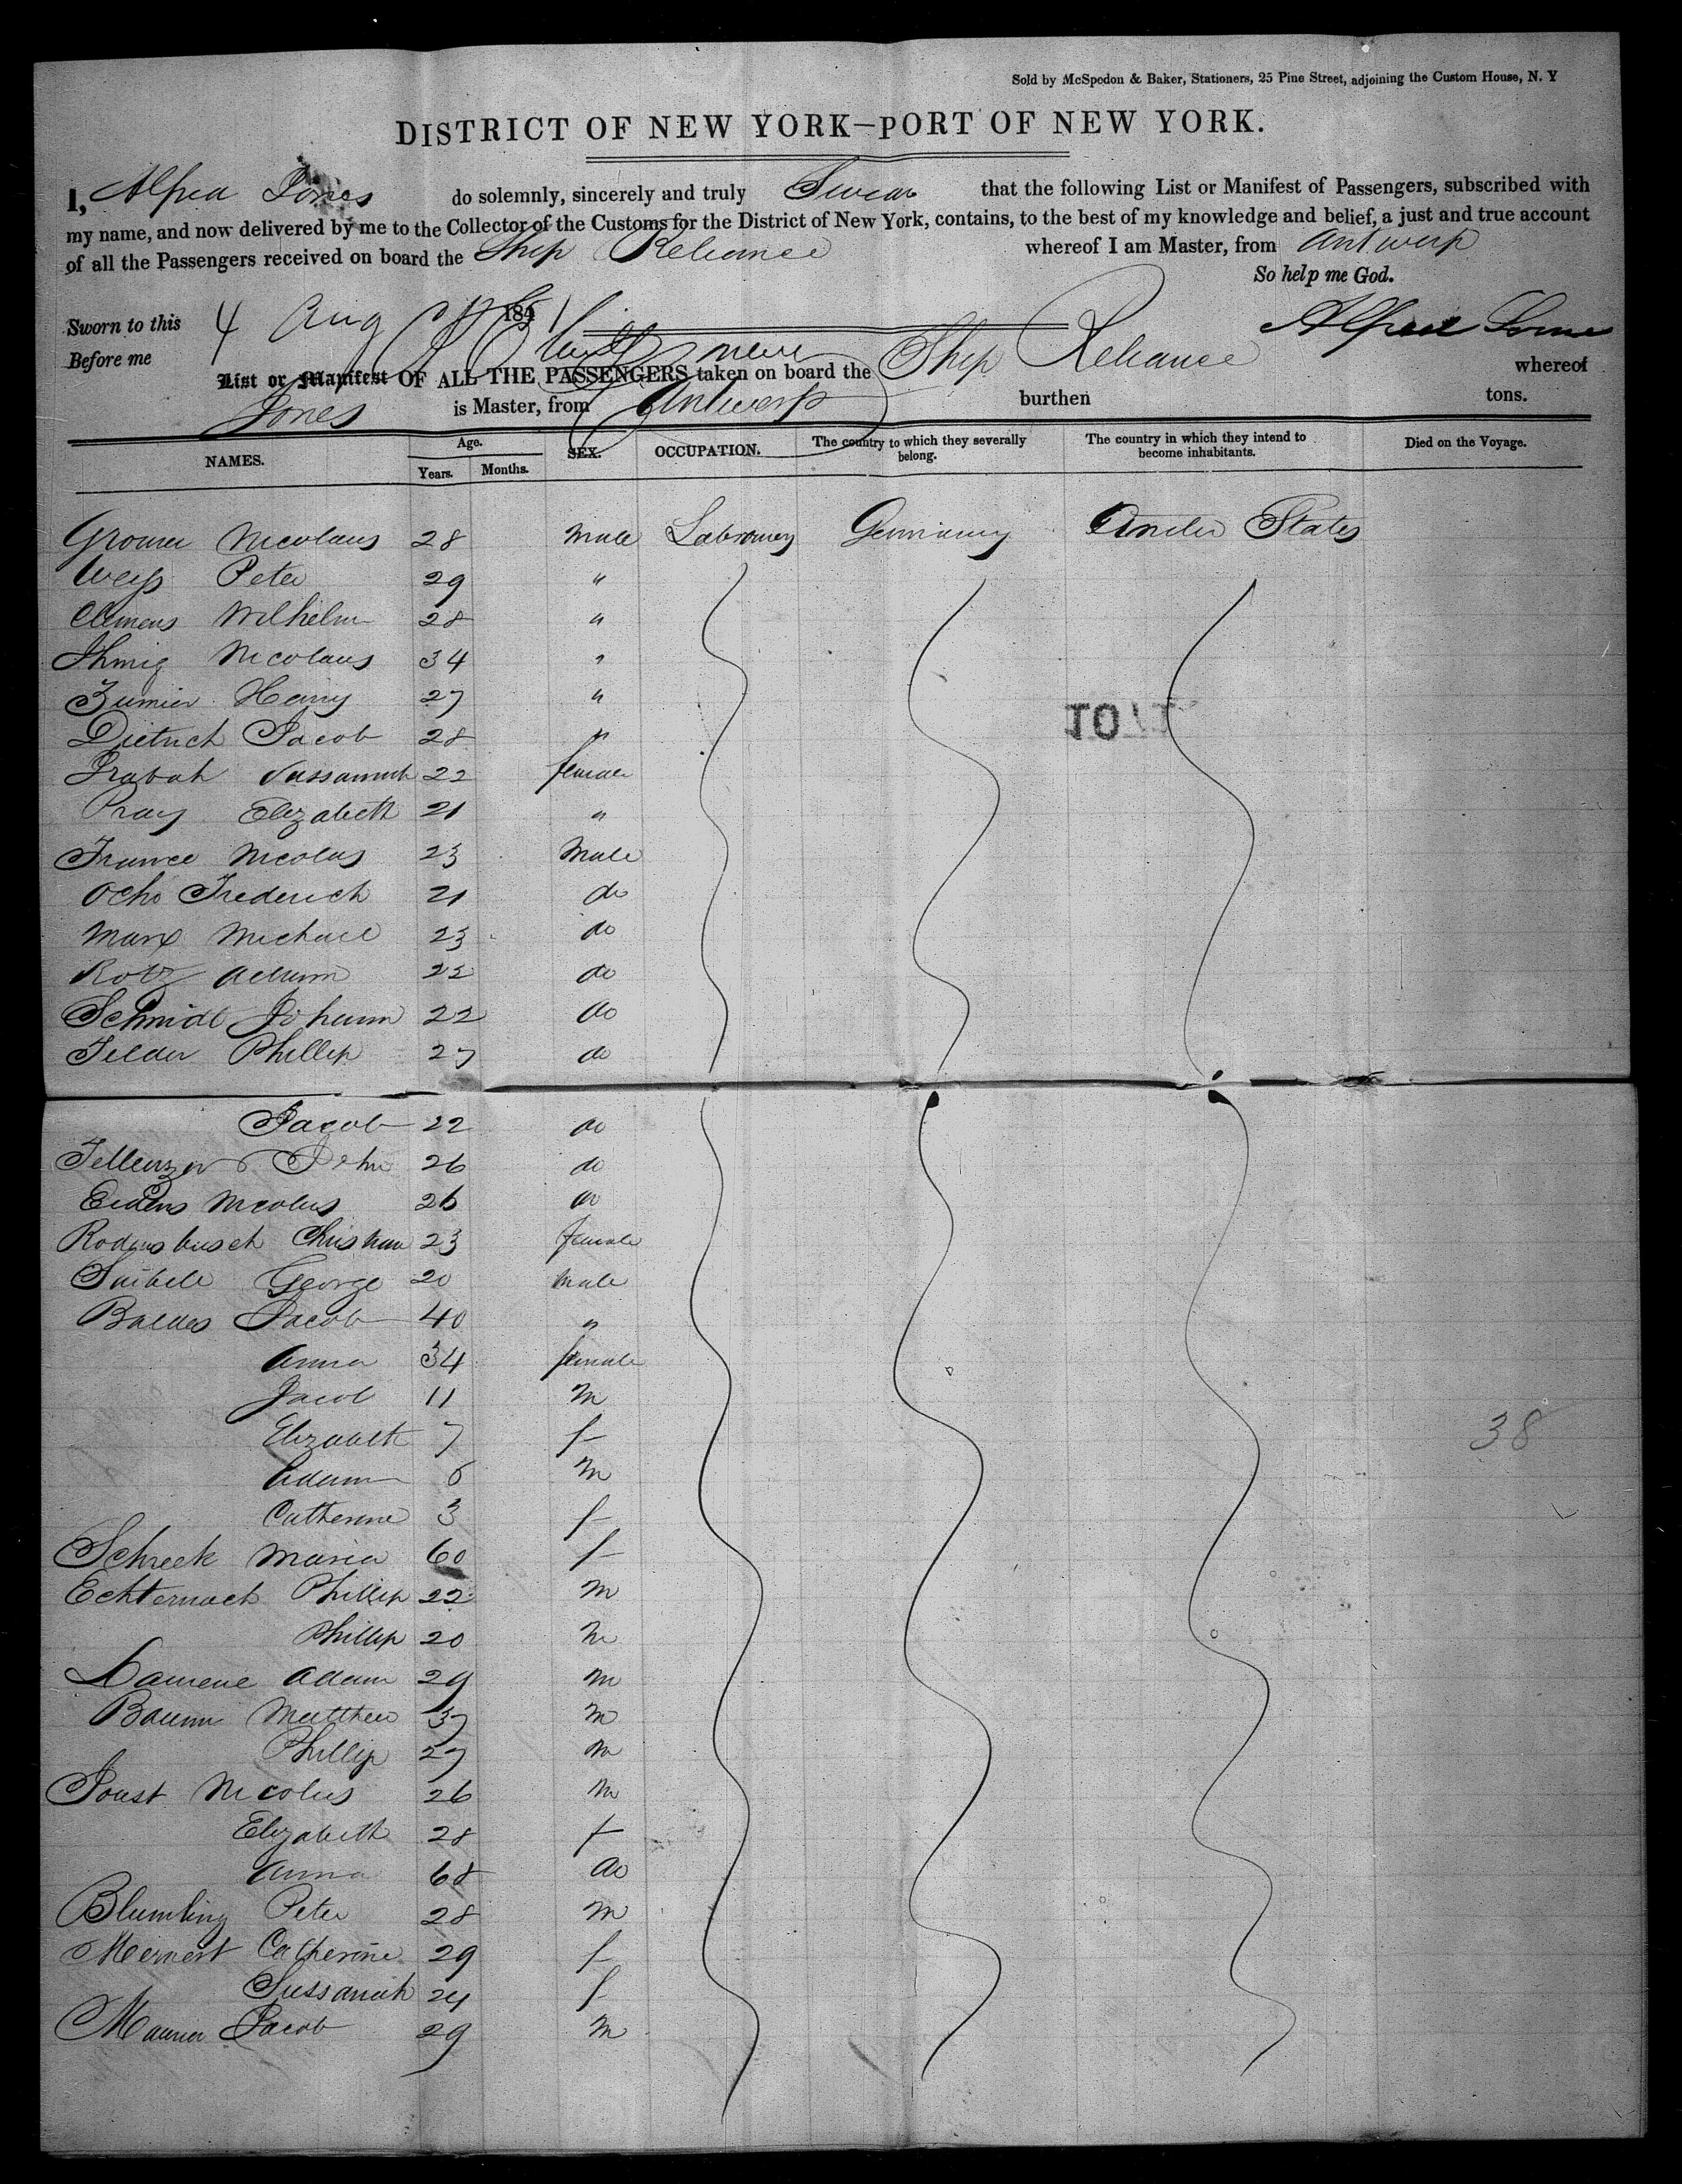 Sold by McSpedon & Baker, Stationers, 25 Pine Street, adjoining the Custom House, N. Y
DISTRICT OF NEW YORK—PORT OF NEW YORK.
I, Alfred Jones do solemnly, sincerely and truly Swear that the following List or Manifest of Passengers, subscribed with
my name, and now delivered by me to the Collector of the Customs for the District of New York, contains, to the best of my knowledge and belief, a just and true account
of all the Passengers received on board the Ship Reliance whereof I am Master, from Antwerp
So help me God.
Sworn to this 4 Aug 1851
Alfred Jones
Before me
List or Manifest OF ALL THE PASSENGERS taken on board the Ship Reliance whereof
Jones is Master, from Antwerp burthen tons.
NAMES. Age. Years. Months. SEX. OCCUPATION. The country to which they severally belong. The country in which they intend to become inhabitants. Died on the Voyage.
Nicolaus 28 Male Germany United States
Weiss Peter 29 "
Clemens Wilhelm 28 "
Ihmig Nicolaus 34 "
Zumier Henry 27 "
Dietrich Jacob 28 "
Sussannah 22 female
Pray Elizabeth 21 "
France Nicolas 23 Male
Ocho Frederich 21 do
Marx Michael 23 do
Rotz Adam 22 do
Schmidt Johann 22 do
Felder Phillip 27 do
Jacob 22 do
Fellenzer John 26 do
Nicolus 26 do
Rodenbusch Christian 23 female
George 20 male
Baldes Jacob 40 "
Anna 34 female
Jacob 11 m
Elizabeth 7 f
Adam 6 m
Catherine 3 f
Schreek Maria 60 f
Echternach Phillip 22 m
Phillip 20 m
Adam 29 m
Baum Matthew 37 m
Phillip 27 m
Joust Nicolus 26 m
Elizabeth 28 f
Anna 68 do
Blumling Peter 28 m
Mernert Catherine 29 f
Sussanah 24 f
Maurer Jacob 29 m
38